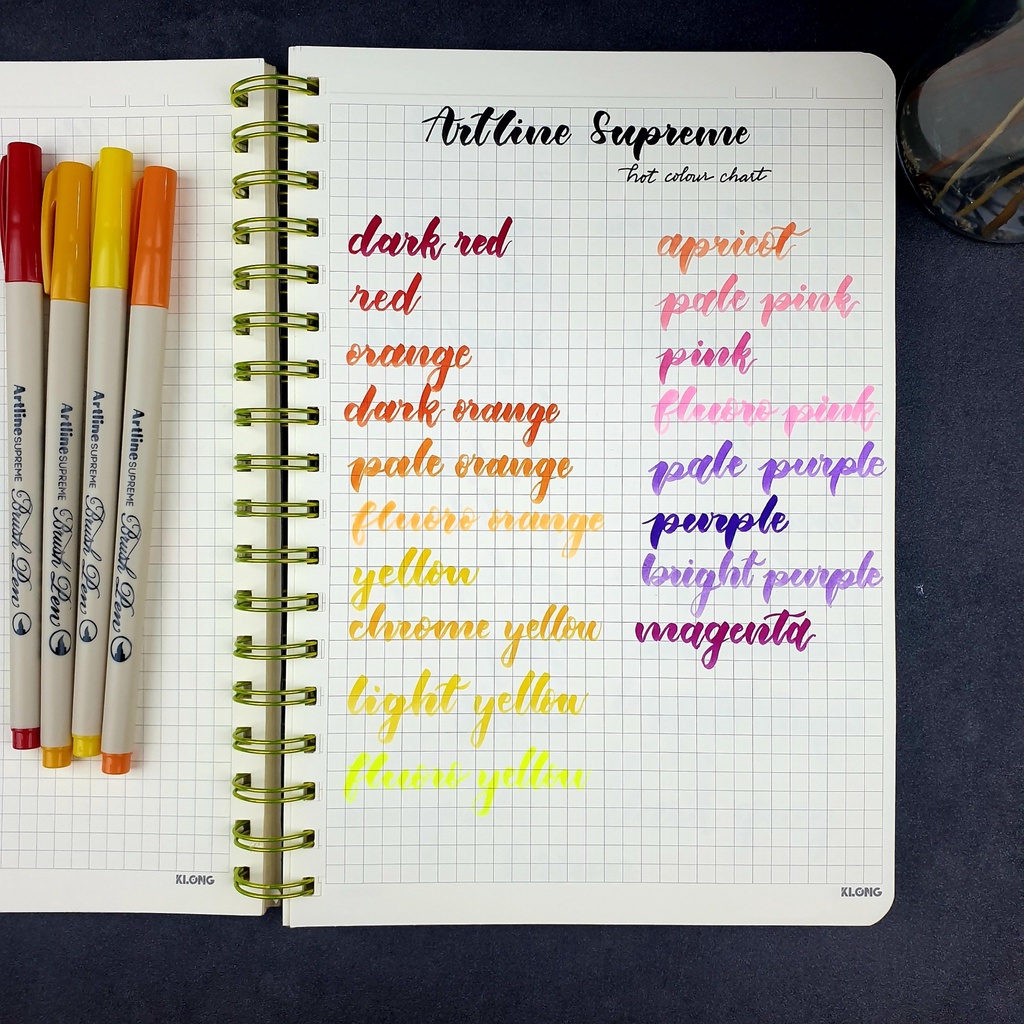 Artline Supreme
hot colour chart
dark red
red
orange
dark orange
pale orange
fluoro orange
yellow
chrome yellow
light yellow
fluoro yellow
apricot
pale pink
pink
fluoro pink
pale purple
purple
bright purple
magenta
Artline SUPREME Brush Pen
Artline SUPREME Brush Pen
Artline SUPREME Brush Pen
Artline SUPREME Brush Pen
KLONG
KLONG